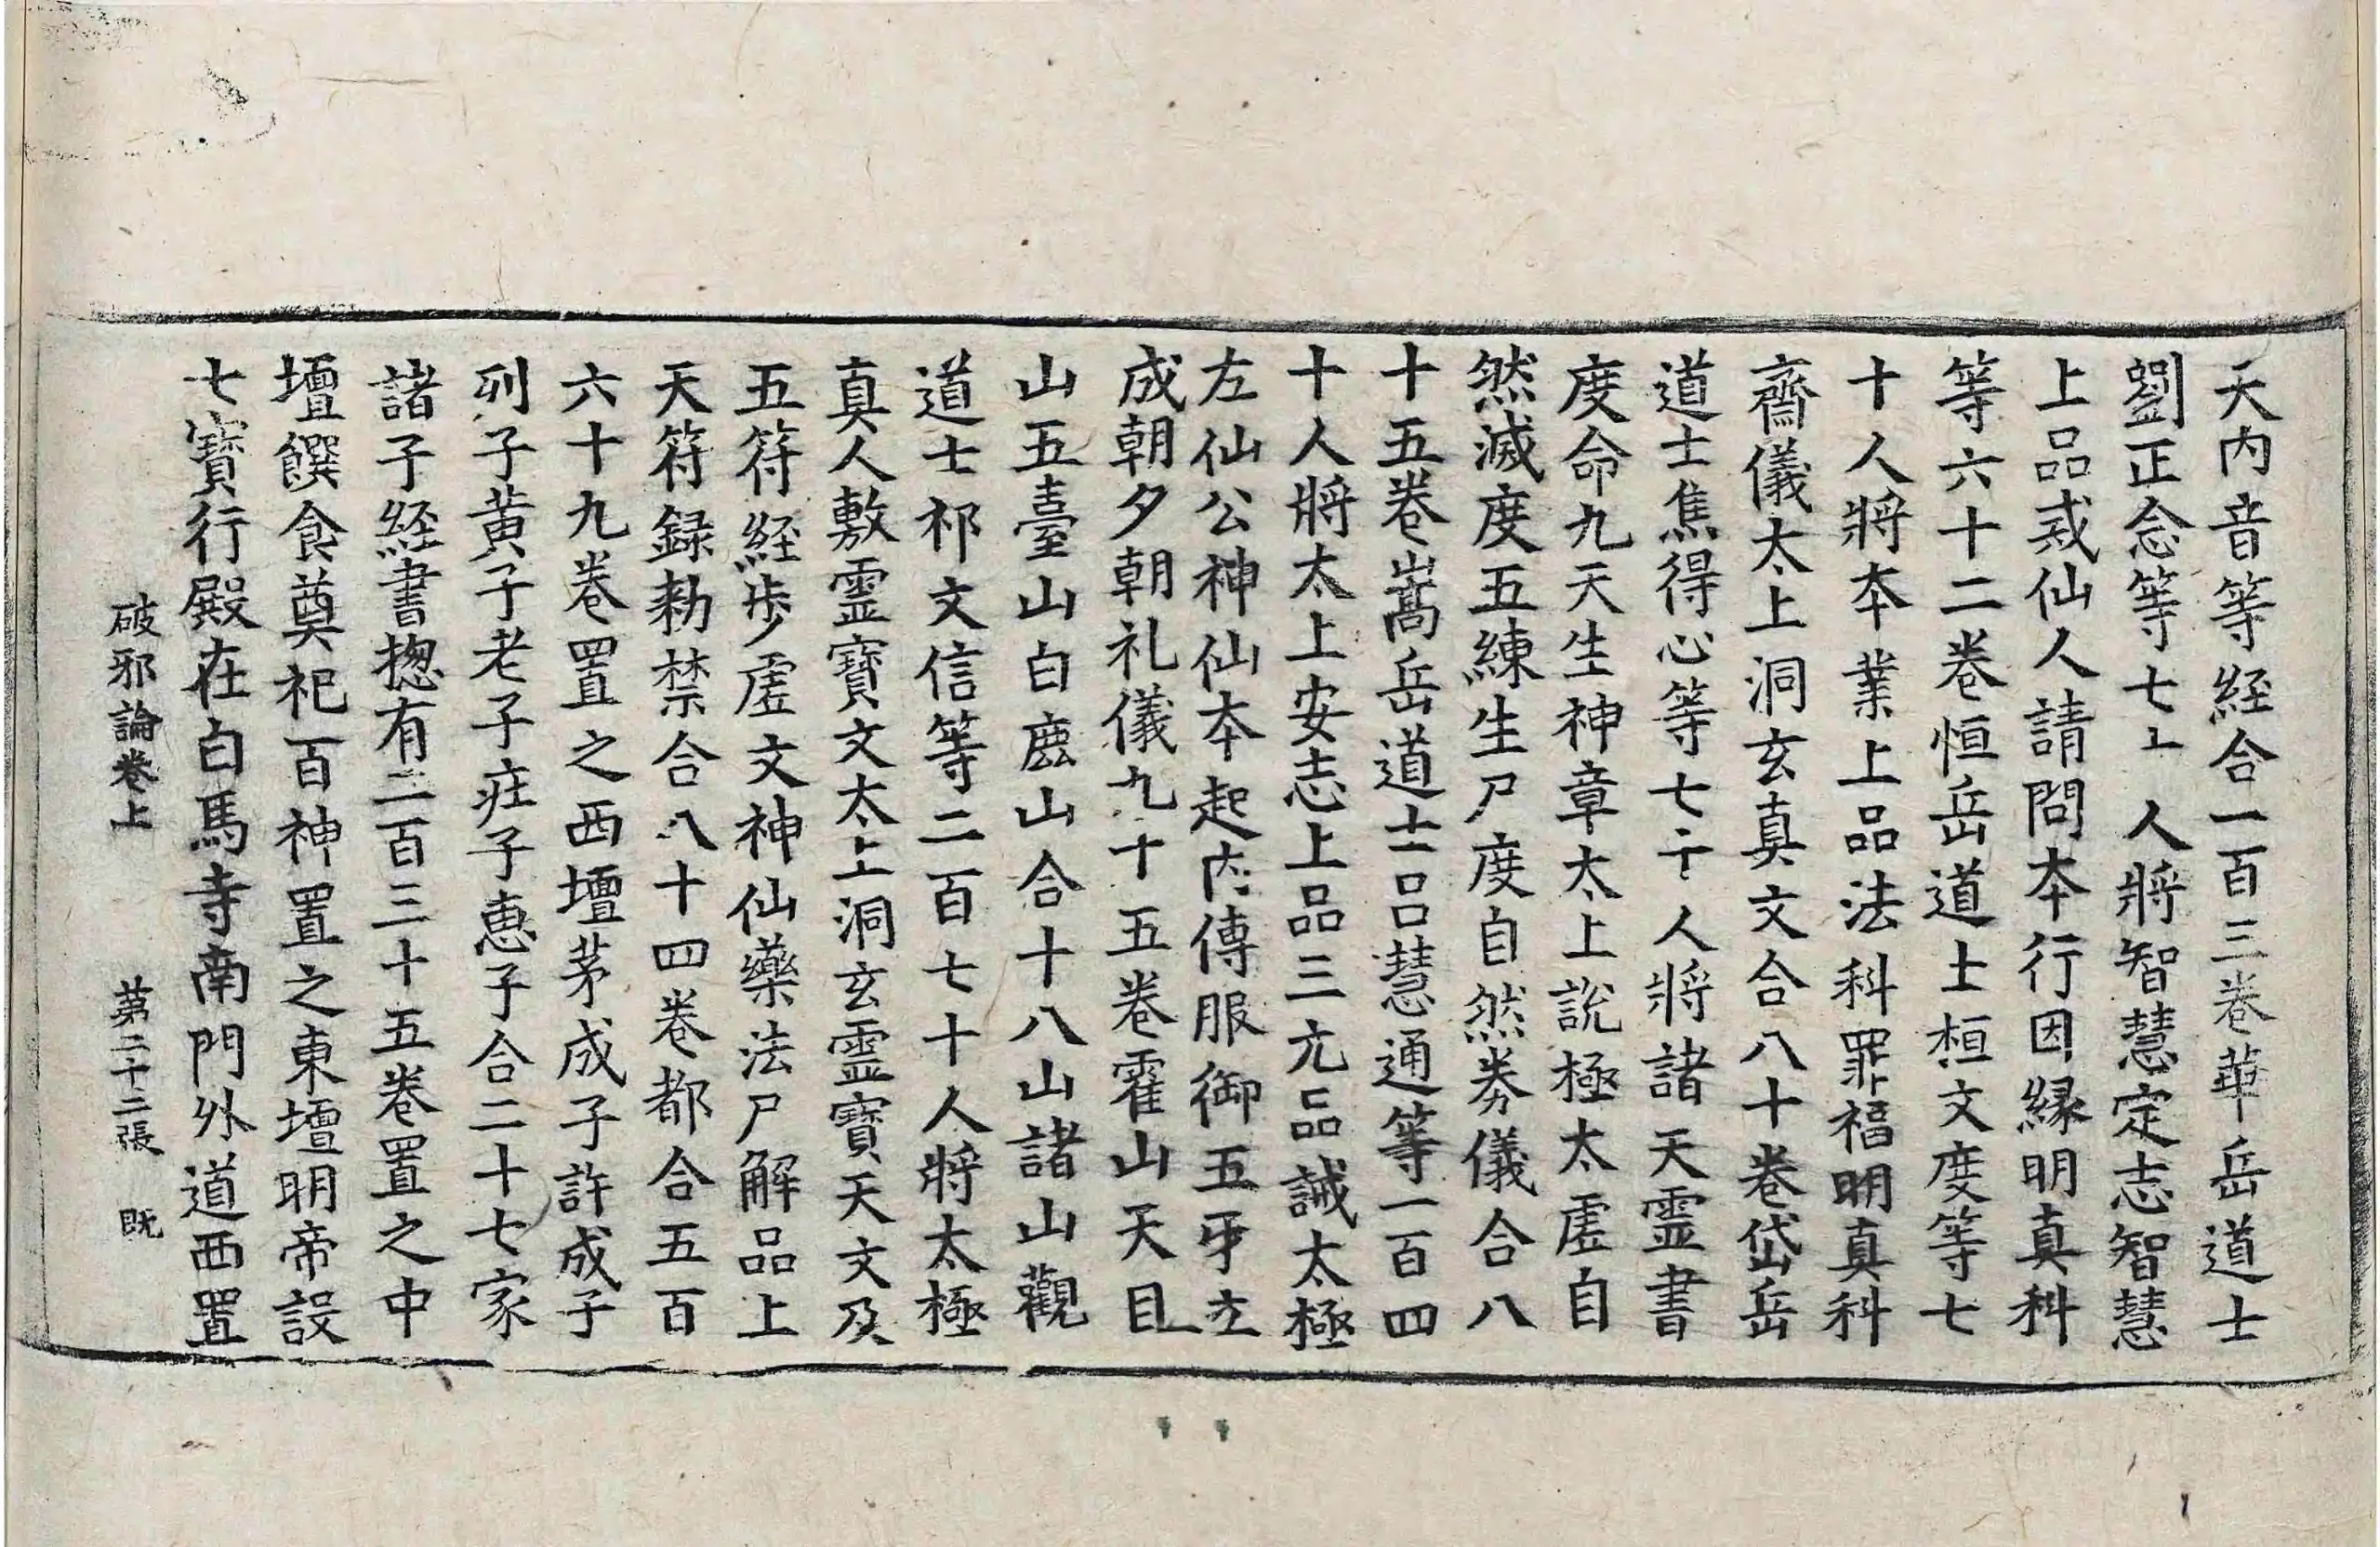 天内音等経合一百三卷華岳道士
劉正念等七十人將智慧定志智慧
上品戒仙人請問本行因縁明真科
等六十二卷恒岳道士桓文度等七
十人將本業上品法科罪福明真科
齋儀太上洞玄真文合八十卷岱岳
道士焦得心等七十人將諸天霊書
度命九天生神章太上說極太虚自
然滅度五練生尸度自然券儀合八
十五卷嵩岳道士吕慧通等一百四
十人將太上安志上品三元品誡太極
左仙公神仙本起内傳服御五牙立
成朝夕朝礼儀九十五卷霍山天目
山五臺山白鹿山合十八山諸山觀
道士祁文信等二百七十人將太極
真人敷霊寶文太上洞玄霊寶天文及
五符経步虚文神仙藥法尸解品上
天符録勑禁合八十四卷都合五百
六十九卷置之西壇茅成子許成子
列子黄子老子庄子惠子合二十七家
諸子経書揔有二百三十五卷置之中
壇饌食奠祀百神置之東壇明帝設
七寳行殿在白馬寺南門外道西置
破邪論卷上 第二十二張 既